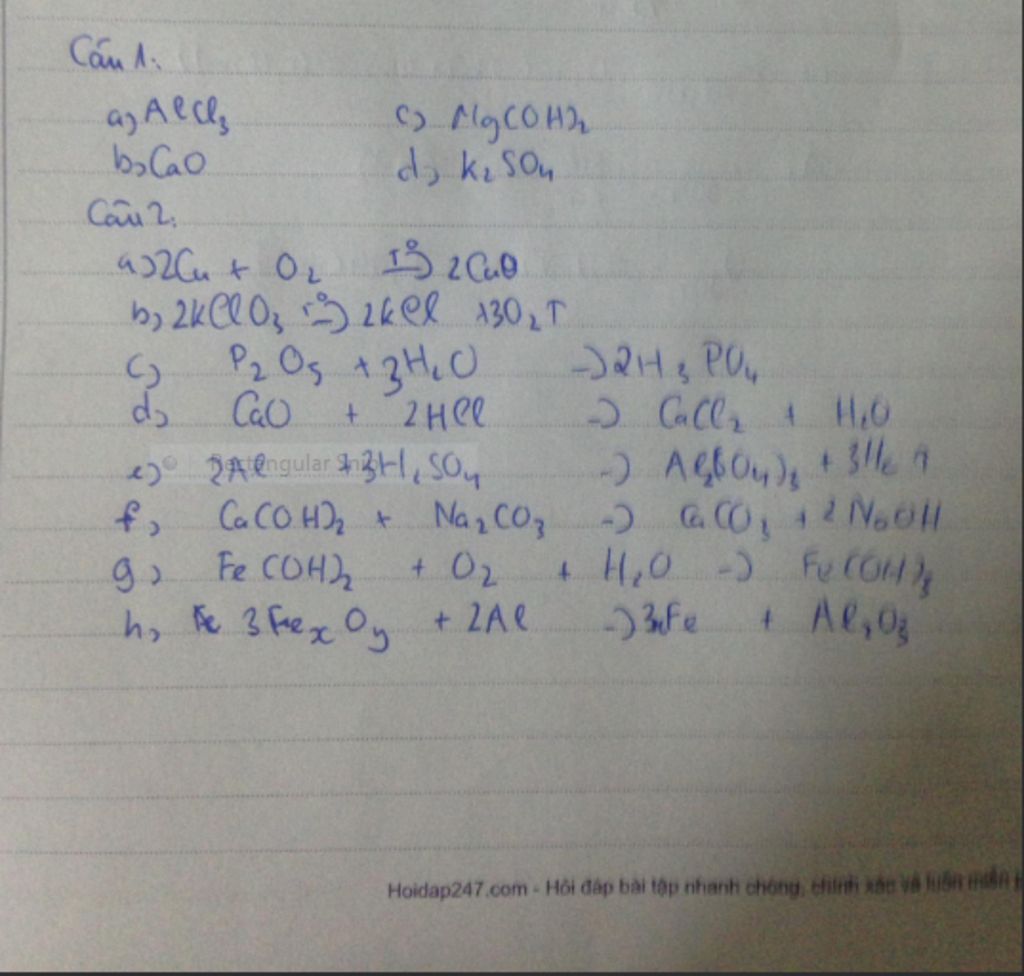 Câu 1:
a, AlCl₃ c, Mg(OH)₂
b, CaO d, K₂SO₄
Câu 2:
a, 2Cu + O₂ t°→ 2CuO
b, 2KClO₃ t°→ 2KCl + 3O₂↑
c, P₂O₅ + 3H₂O → 2H₃PO₄
d, CaO + 2HCl → CaCl₂ + H₂O
e, 2Al + 3H₂SO₄ → Al₂(SO₄)₃ + 3H₂↑
Rectangular Snip
f, Ca(OH)₂ + Na₂CO₃ → CaCO₃ + 2NaOH
g, Fe(OH)₂ + O₂ + H₂O → Fe(OH)₃
h, 3FeₓOᵧ + 2Al → Fe + Al₂O₃
Hoidap247.com - Hỏi đáp bài tập nhanh chóng, chính xác và luôn miễn